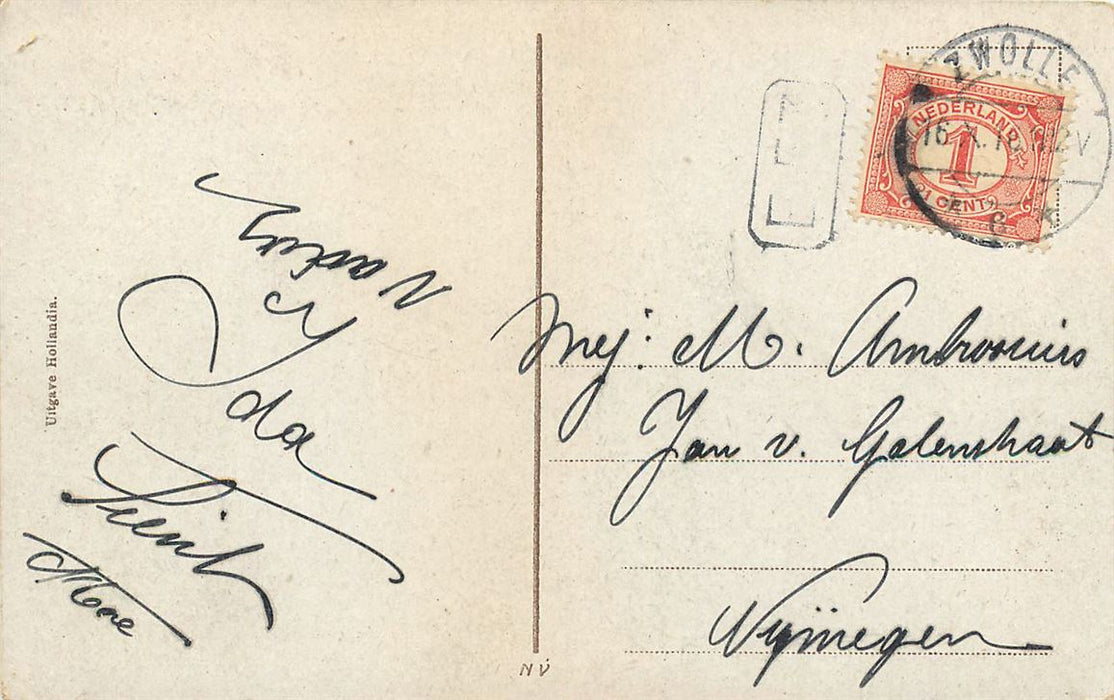 Vader
Ida
Sient
Moe
Uitgave Hollandia.
ZWOLLE
16.X.18.12V
NEDERLAND
1
1 CENT
Mej: M. Ambrosius
Jan v. Galenstraat
Nijmegen
NV